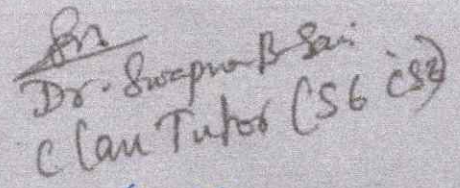 Dr. Swapna B Sasi
Class Tutor (S6 CS2)